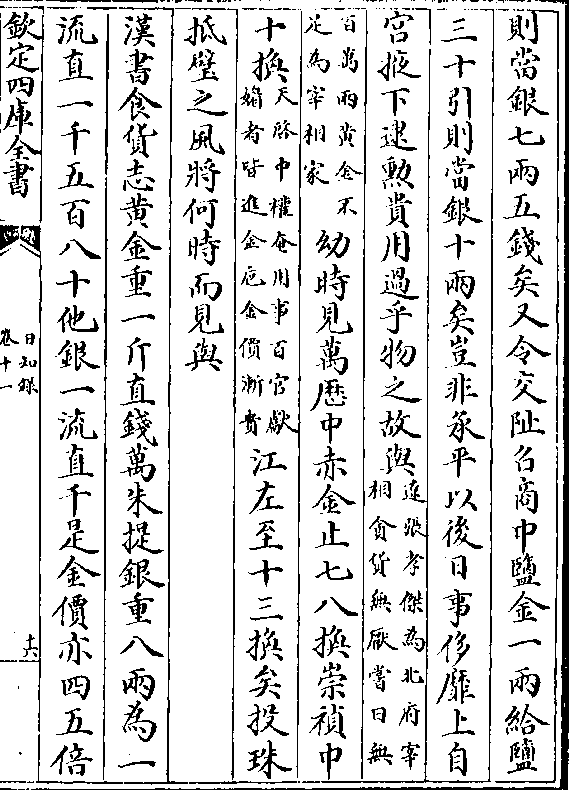 則當銀七兩五錢矣又令交阯召商中鹽金一兩給鹽
三十引則當銀十兩矣豈非承平以後日事侈靡上自
宮掖下逮勲貴用過乎物之故與遼張孝傑為北府宰
相貪貨無厭嘗曰無
百萬兩黄金不
足為宰相家
幼時見萬歷中赤金止七八換崇禎中
十換天啓中權奄用事百官獻
媚者皆進金巵金價漸貴
江左至十三換矣投珠
抵璧之風將何時而見與
漢書食貨志黄金重一斤直錢萬朱提銀重八兩為一
流直一千五百八十他銀一流直千是金價亦四五倍
欽定四庫全書
日知録
卷十一
十六